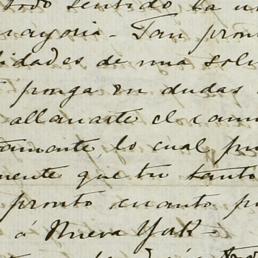 todo sentido la
Tan pron
lidades de una solu
ponga en dudas
allanarte el cam
tamente, lo cual pu
mente que tu tanto
pronto cuanto p
á Nueva York-